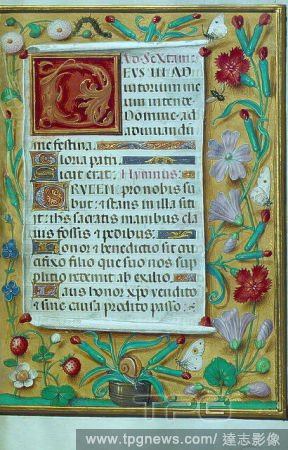 Ad Sextam
EUS IN AD
iutorium me
um intende
Domine ad
adiuvandum
me festina
Gloria patri
Sicut erat Hymnus
CRUCEM pro nobis su
biit et stans in illa siti
it ihs sacratis manibus cla
uis fossis et pedibus
Honor et benedictio sit cru
cifixo filio qui suo nos sup
plitio redemit ab exilio
Laus honor xpo vendito
et sine causa prodito passo
TPG
www.tpgnews.com/ 達志影像